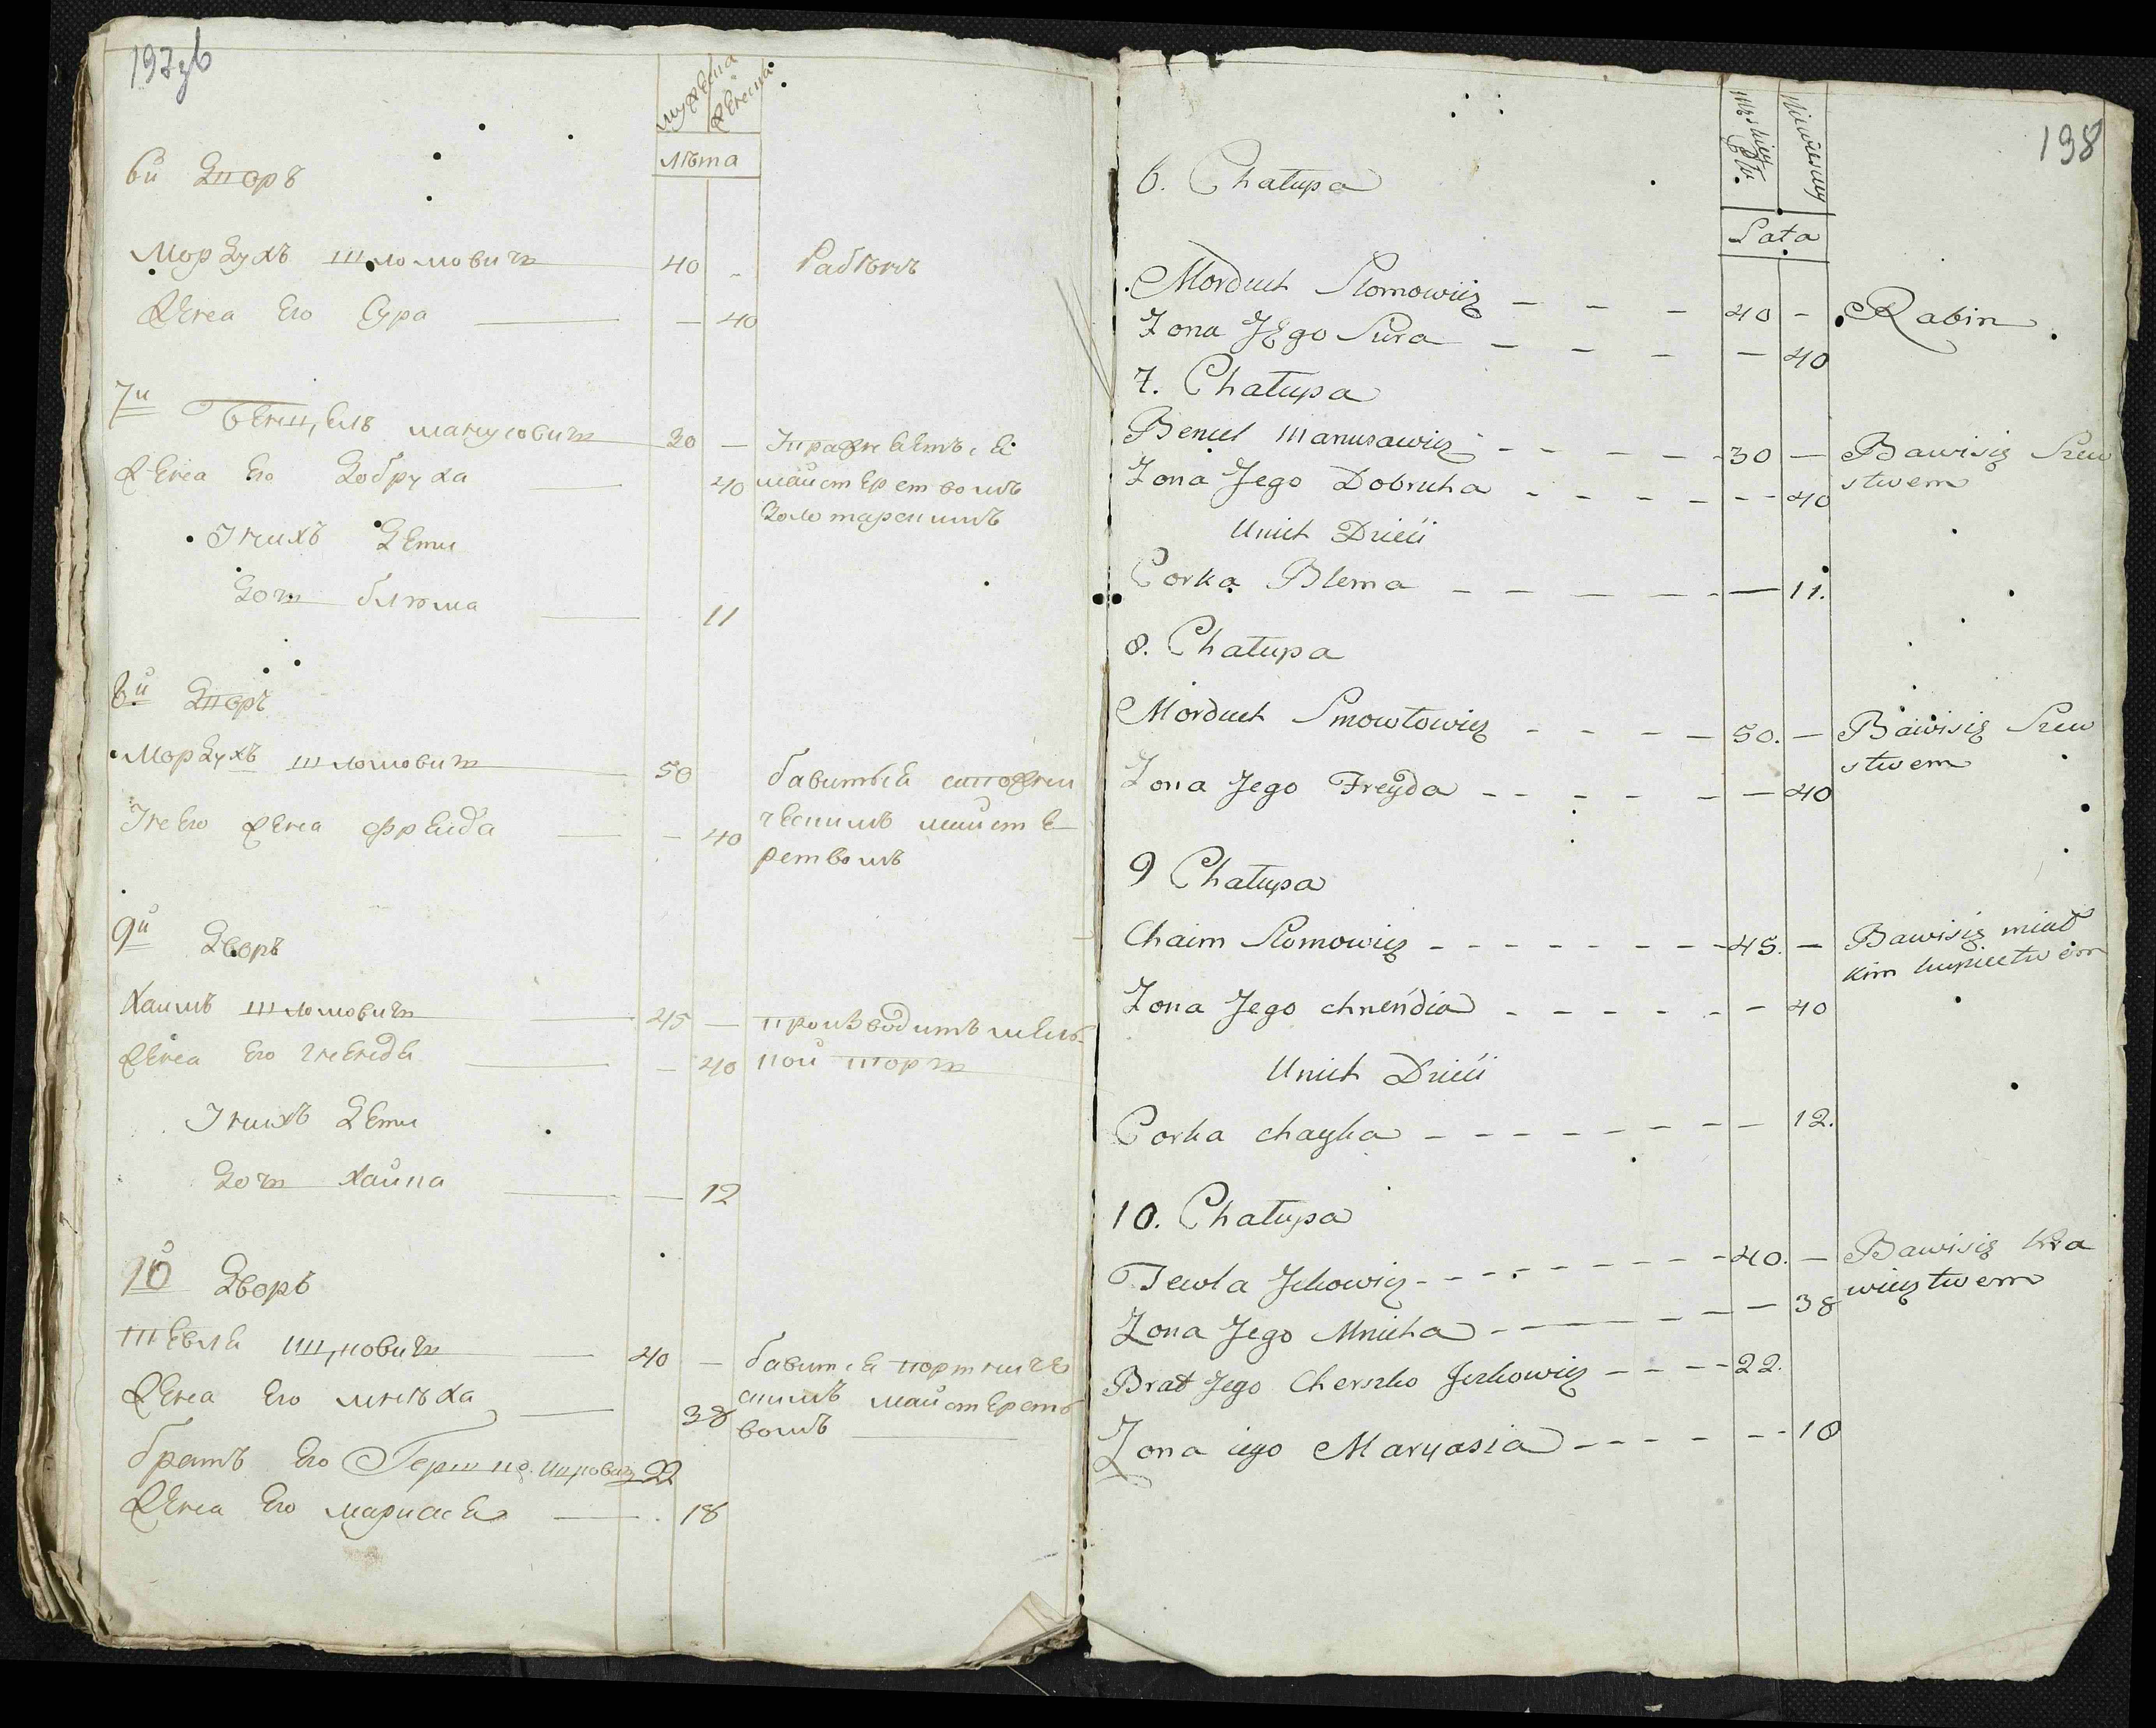 197зб
мужеска
женска
лѣта
6й Дворъ
Мордухъ Шломовичъ 40 - Рабѣнъ
Жена Его Сура — 40
7й
Бенцель манусовичъ 30 — Упражняется
Жена Его Добруха 40 майстерствомъ
Золотарскимъ
У нихъ Дети
Доч блюма 11
8й Дворъ
Мордухъ Шломовичъ 50 бавиться сапожни
ческимъ майсте
У него жена Фрейда — 40
рствомъ
9й Дворъ
Хаимъ Шломовичъ 45 — производитъ мель
Жена Его Гненде — 40 кой торгъ
У нихъ Дети
Доч Хайка — 12
10 Дворъ
Тевле Ицковичъ 40 — бавится портниче
Жена Его мнѣха 38 скимъ майстерст
вомъ
братъ Его Гершко Ицковичъ 22
Жена Его мариасе 18
198
Męskiey Płci
Niewiesciey
Lata
6. Chałupa
Morduch Slomowicz — — — 40 - Rabin
Zona Jego Sura — — — — 40
7. Chałupa
Bencel Manusawicz - - - - - 30 — Bawi się Szew
Zona Jego Dobrucha - - - - - - 40 stwem
U nich Dzieci
Corka Blema — — — — - — 11.
8. Chałupa
Morduch Smowłowicz - - - - — 50. — Bawi się Szew
stwem
Zona Jego Freyda - - - - — — 40
9 Chałupa
Chaim Slomowicz - - - - - - - - 45. — Bawi się miał
kim kupiectwem
Zona Jego chnendia - - - - - - 40
U nich Dzieci
Corka chayka - - - - - - - — 12.
10. Chałupa
Tewla Jckowicz - - - - - - - - 40. — Bawi się kra
wiectwem
Zona Jego Mnicha - - — - — — 38
Brat Jego Cherszko Jczkowicz - - - - 22.
Zona iego Maryasia - - - - - - 18